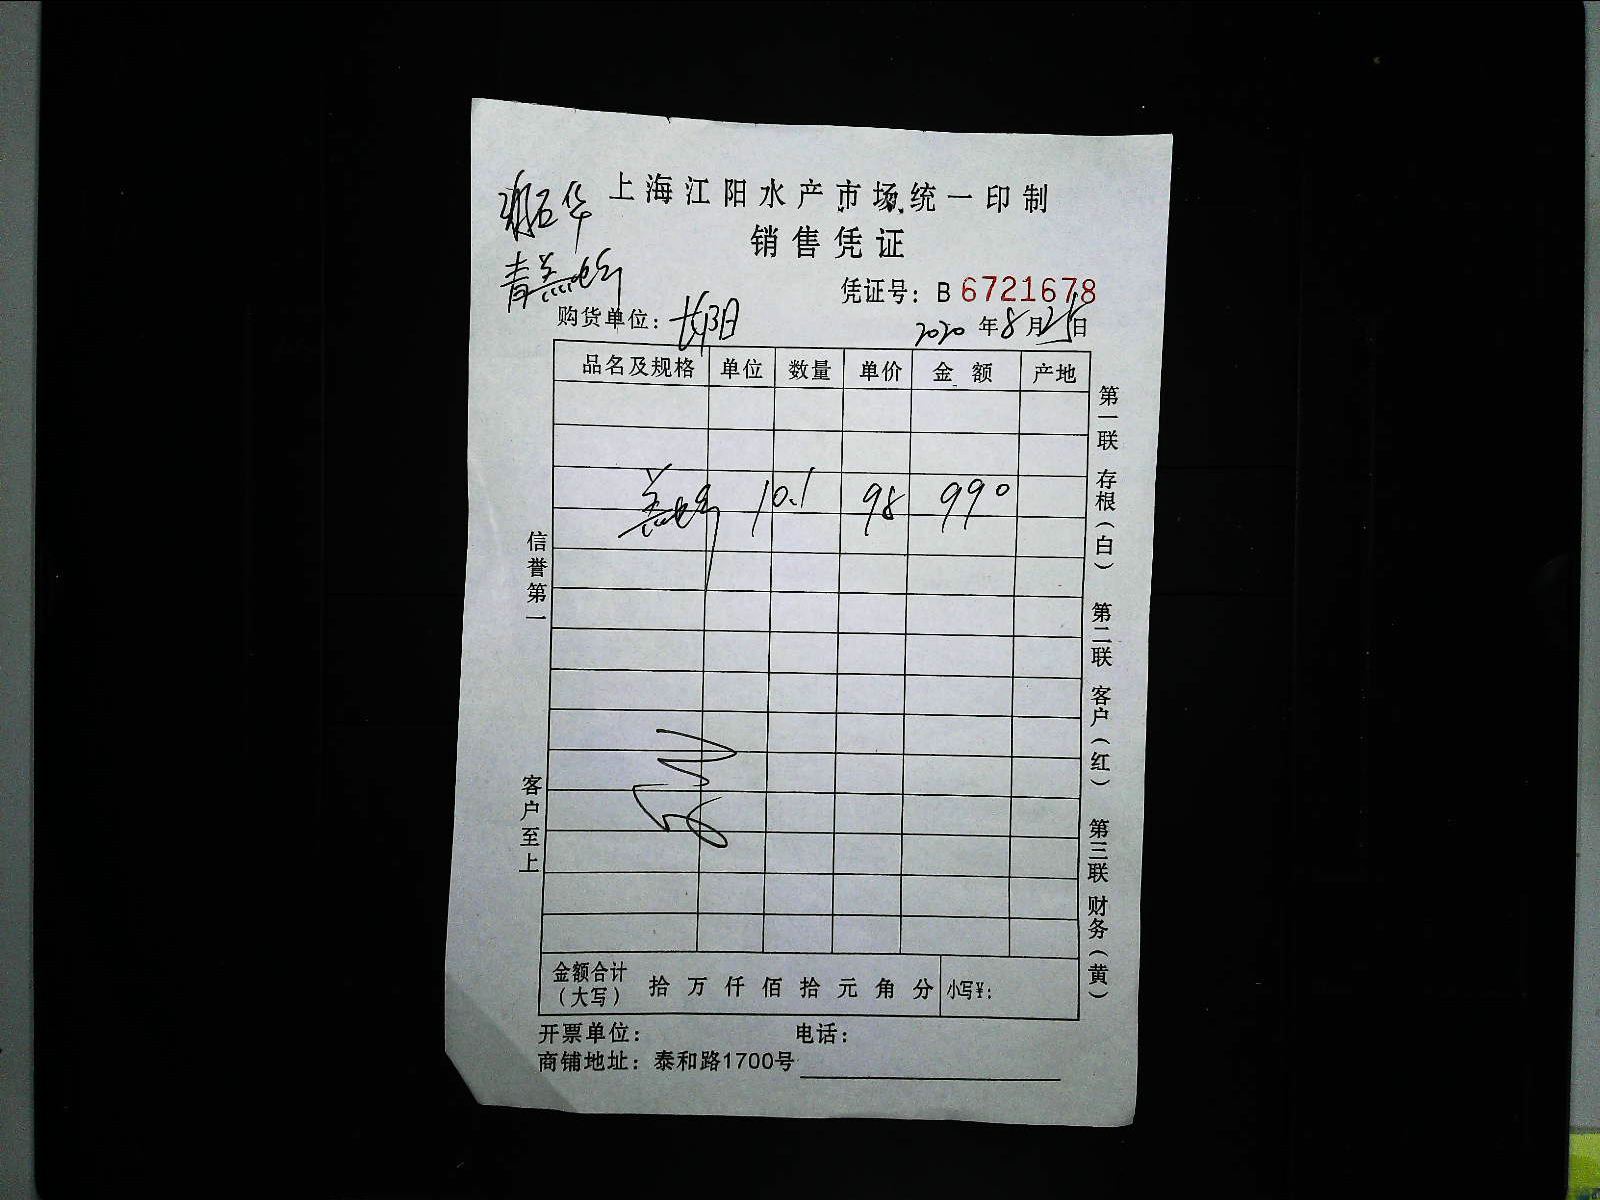 上海江阳水产市场统一印制
销售凭证
凭证号：B 6721678
购货单位：
2020 年 8 月 25 日
品名及规格 单位 数量 单价 金额 产地
10.1 98 990
信誉第一
客户至上
第一联 存根（白） 第二联 客户（红） 第三联 财务（黄）
金额合计（大写） 拾 万 仟 佰 拾 元 角 分 小写￥：
开票单位： 电话：
商铺地址：泰和路1700号